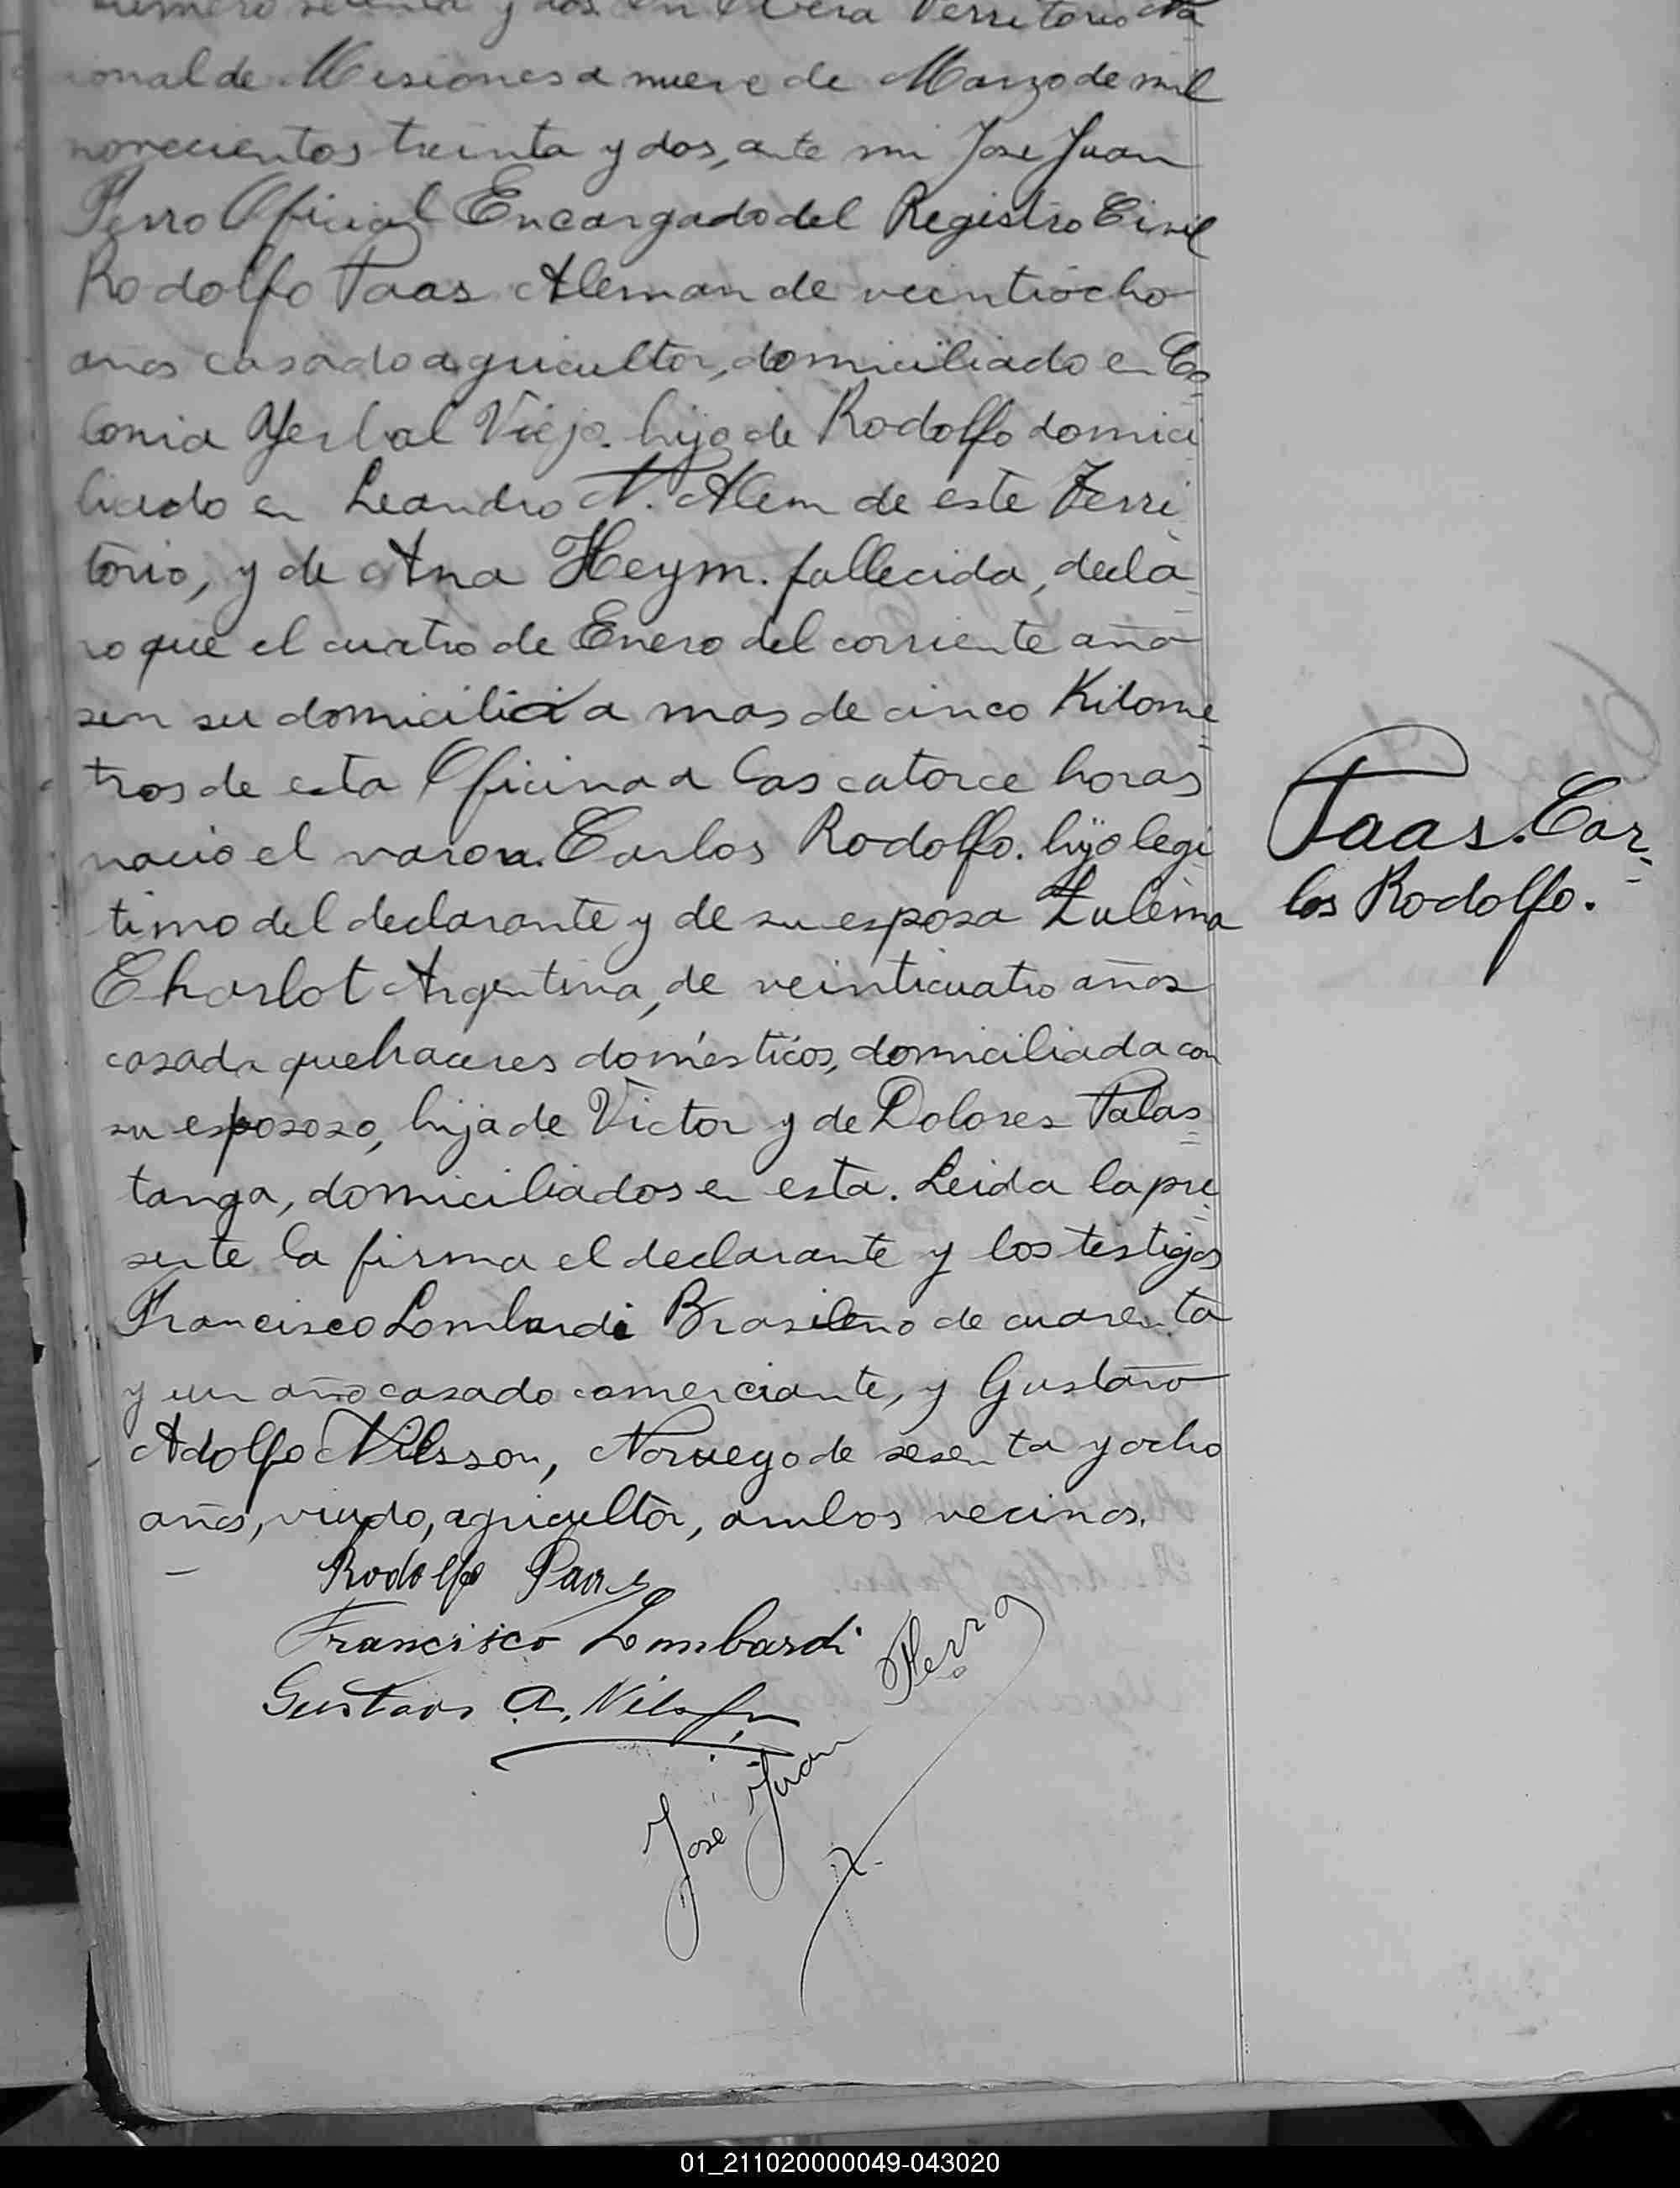 numero setenta y dos. en Overa Territorio Na
cional de Misiones a nueve de Marzo de mil
novecientos treinta y dos, ante mi Jose Juan
Ferro Oficial Encargado del Registro Civil
Rodolfo Paas Aleman de veintiocho
años casado agricultor, domiciliado en Co
lonia Yerbal Viejo. hijo de Rodolfo domici
liado en Leandro N. Alem de este Terri
torio, y de Ana Heym. fallecida, decla
ro que el cuatro de Enero del corriente año
en su domicilio a mas de cinco Kilome
tros de esta Oficina a las catorce horas
nacio el varon. Carlos Rodolfo. hijo legi
timo del declarante y de su esposa Zulema
Charlot Argentina, de veinticuatro años
casada quehaceres domésticos, domiciliada con
su espososo, hija de Victor y de Dolores Palas
tanga, domiciliados en esta. Leida la pre
sente la firma el declarante y los testigos
Francisco Lombardi Brasileño de cuarenta
y un año casado comerciante, y Gustavo
Adolfo Nilsson, Noruego de sesenta y ocho
años, viudo, agricultor, ambos vecinos.
Paas. Car
los Rodolfo.
Rodolfo Paas
Francisco Lombardi
Gustavo A. Nilsson
José Juan Ferro
01_211020000049-043020